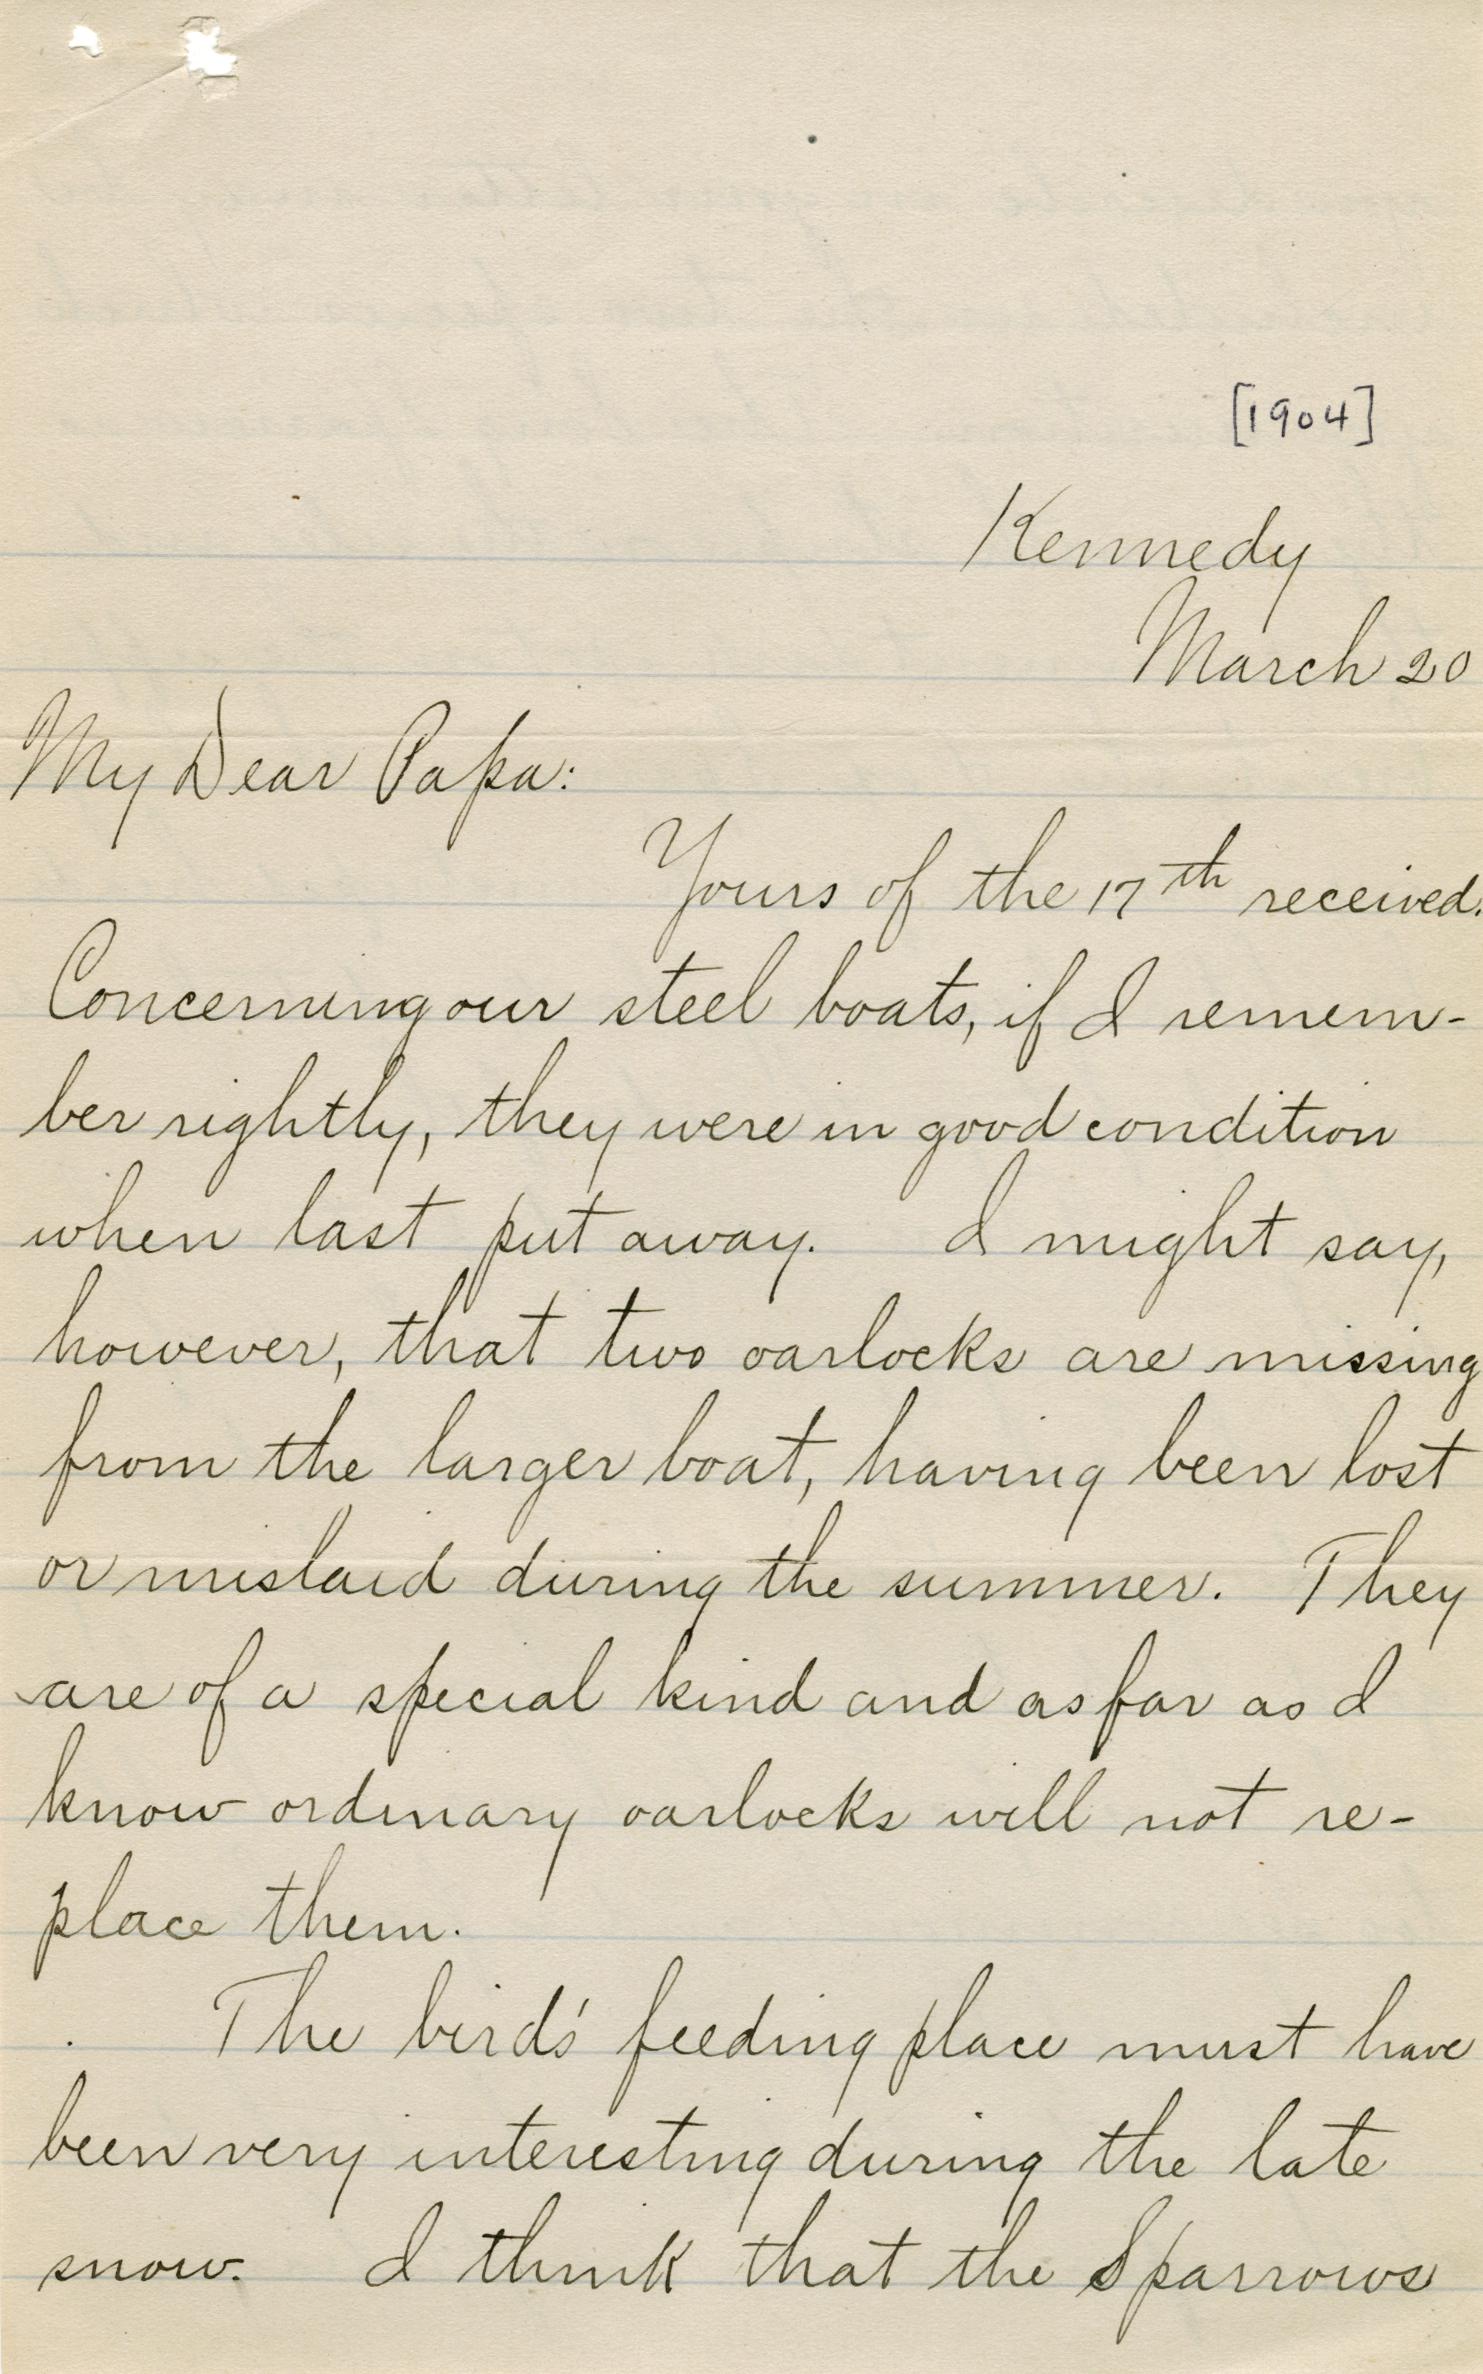 [1904]
Kennedy
March 20
My Dear Papa:
Yours of the 17th received.
Concerning our steel boats, if I remem-
ber rightly, they were in good condition
when last put away. I might say,
however, that two oarlocks are missing
from the larger boat, having been lost
or mislaid during the summer. They
are of a special kind and as far as I
know ordinary oarlocks will not re-
place them.
The bird's feeding place must have
been very interesting during the late
snow. I think that the Sparrows